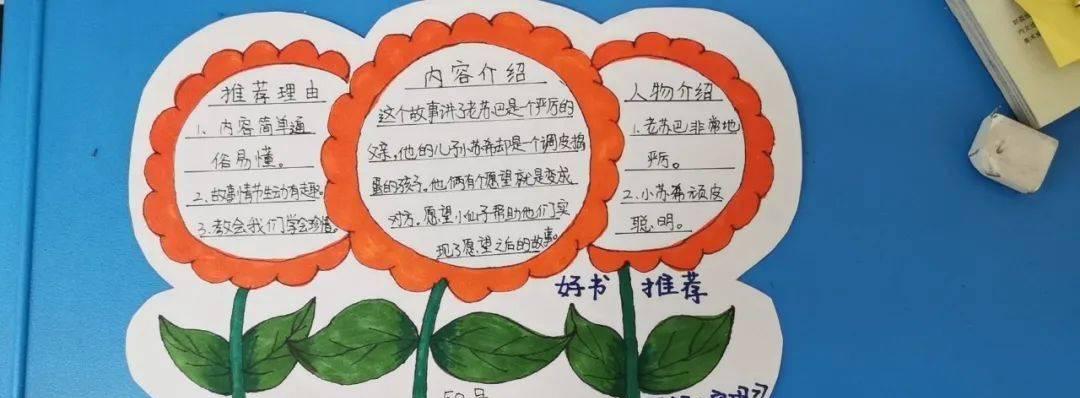 推荐理由
1、内容简单通
俗易懂。
2、故事情节生动有趣。
3、教会我们学会珍惜。
内容介绍
这个故事讲了老苏巴是一个严厉的
父亲，他的儿子小苏希却是一个调皮捣
蛋的孩子。他俩有个愿望就是变成
对方。愿望小仙子帮助他们实
现了愿望之后的故事。
人物介绍
1、老苏巴非常地
严厉。
2、小苏希顽皮
聪明。
好书 推荐